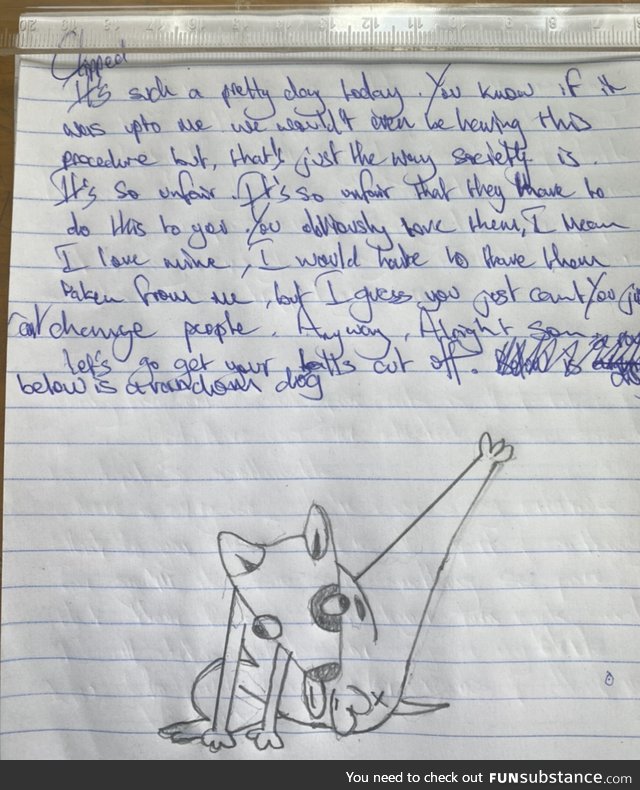 Clipped
It's such a pretty day today. You know if it
was upto me we wouldn't even be having this
procedure but, that's just the way societty is.
It's so unfair. It's so unfair that they have to
do this to you. You obliously love them, I mean
I love mine, I would hate to have them
taken from me, but I guess you just cant You ju
cant change people. Anyway, Alright son
let's go get your balls cut off.
below is a random dog
You need to check out FUNsubstance.com